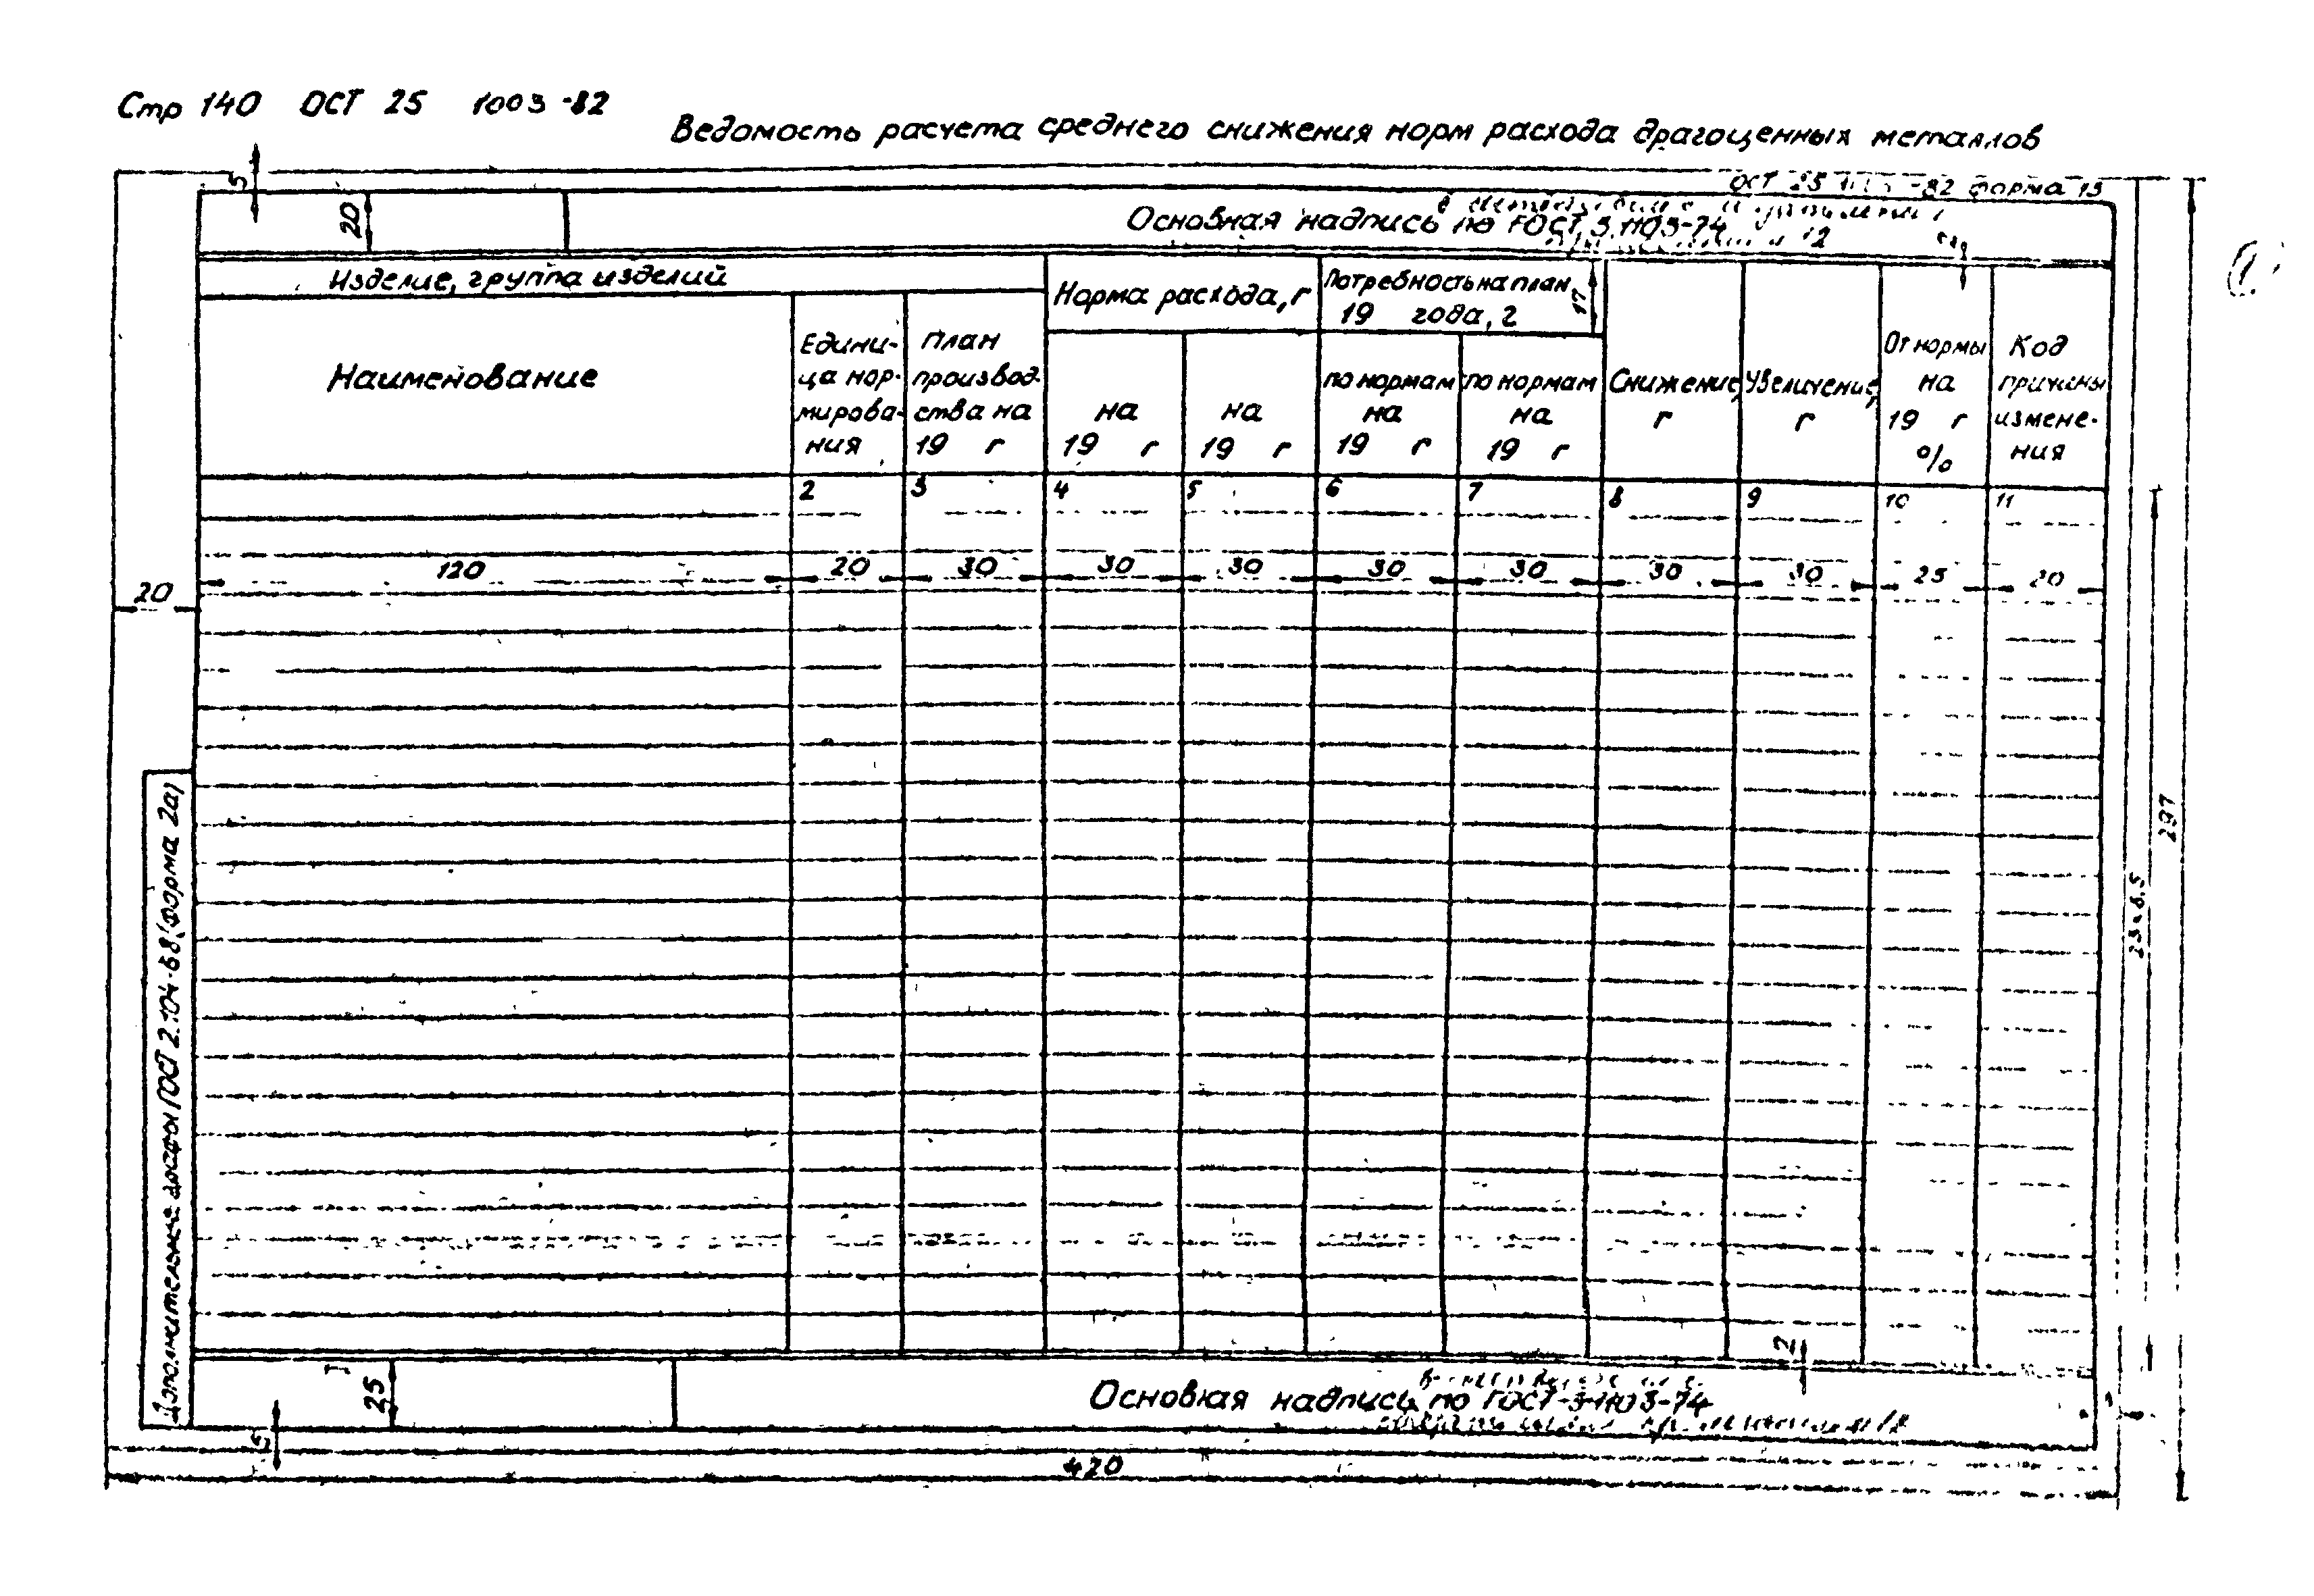 Стр 140 ОСТ 25 1003-82
Ведомость расчета среднего снижения норм расхода драгоценных металлов
5
ОСТ 25 -82 форма 13
20
Основная надпись по ГОСТ 3.1103-74
12
Изделие, группа изделий
Норма расхода, г
Потребность на план
19 года, г
17
Наименование
Едини-
ца нор-
мирова-
ния
План
производ-
ства на
19 г
на
19 г
на
19 г
по нормам
на
19 г
по нормам
на
19 г
Снижение,
г
Увеличение,
г
От нормы
на
19 г
%
Код
причины
измене-
ния
2 3 4 5 6 7 8 9 10 11
120 20 30 30 30 30 30 30 30 25 20
20
297
Дополнительные графы ГОСТ 2.104-68 (форма 2а)
2
25
Основная надпись по ГОСТ-3-1103-74
5
420